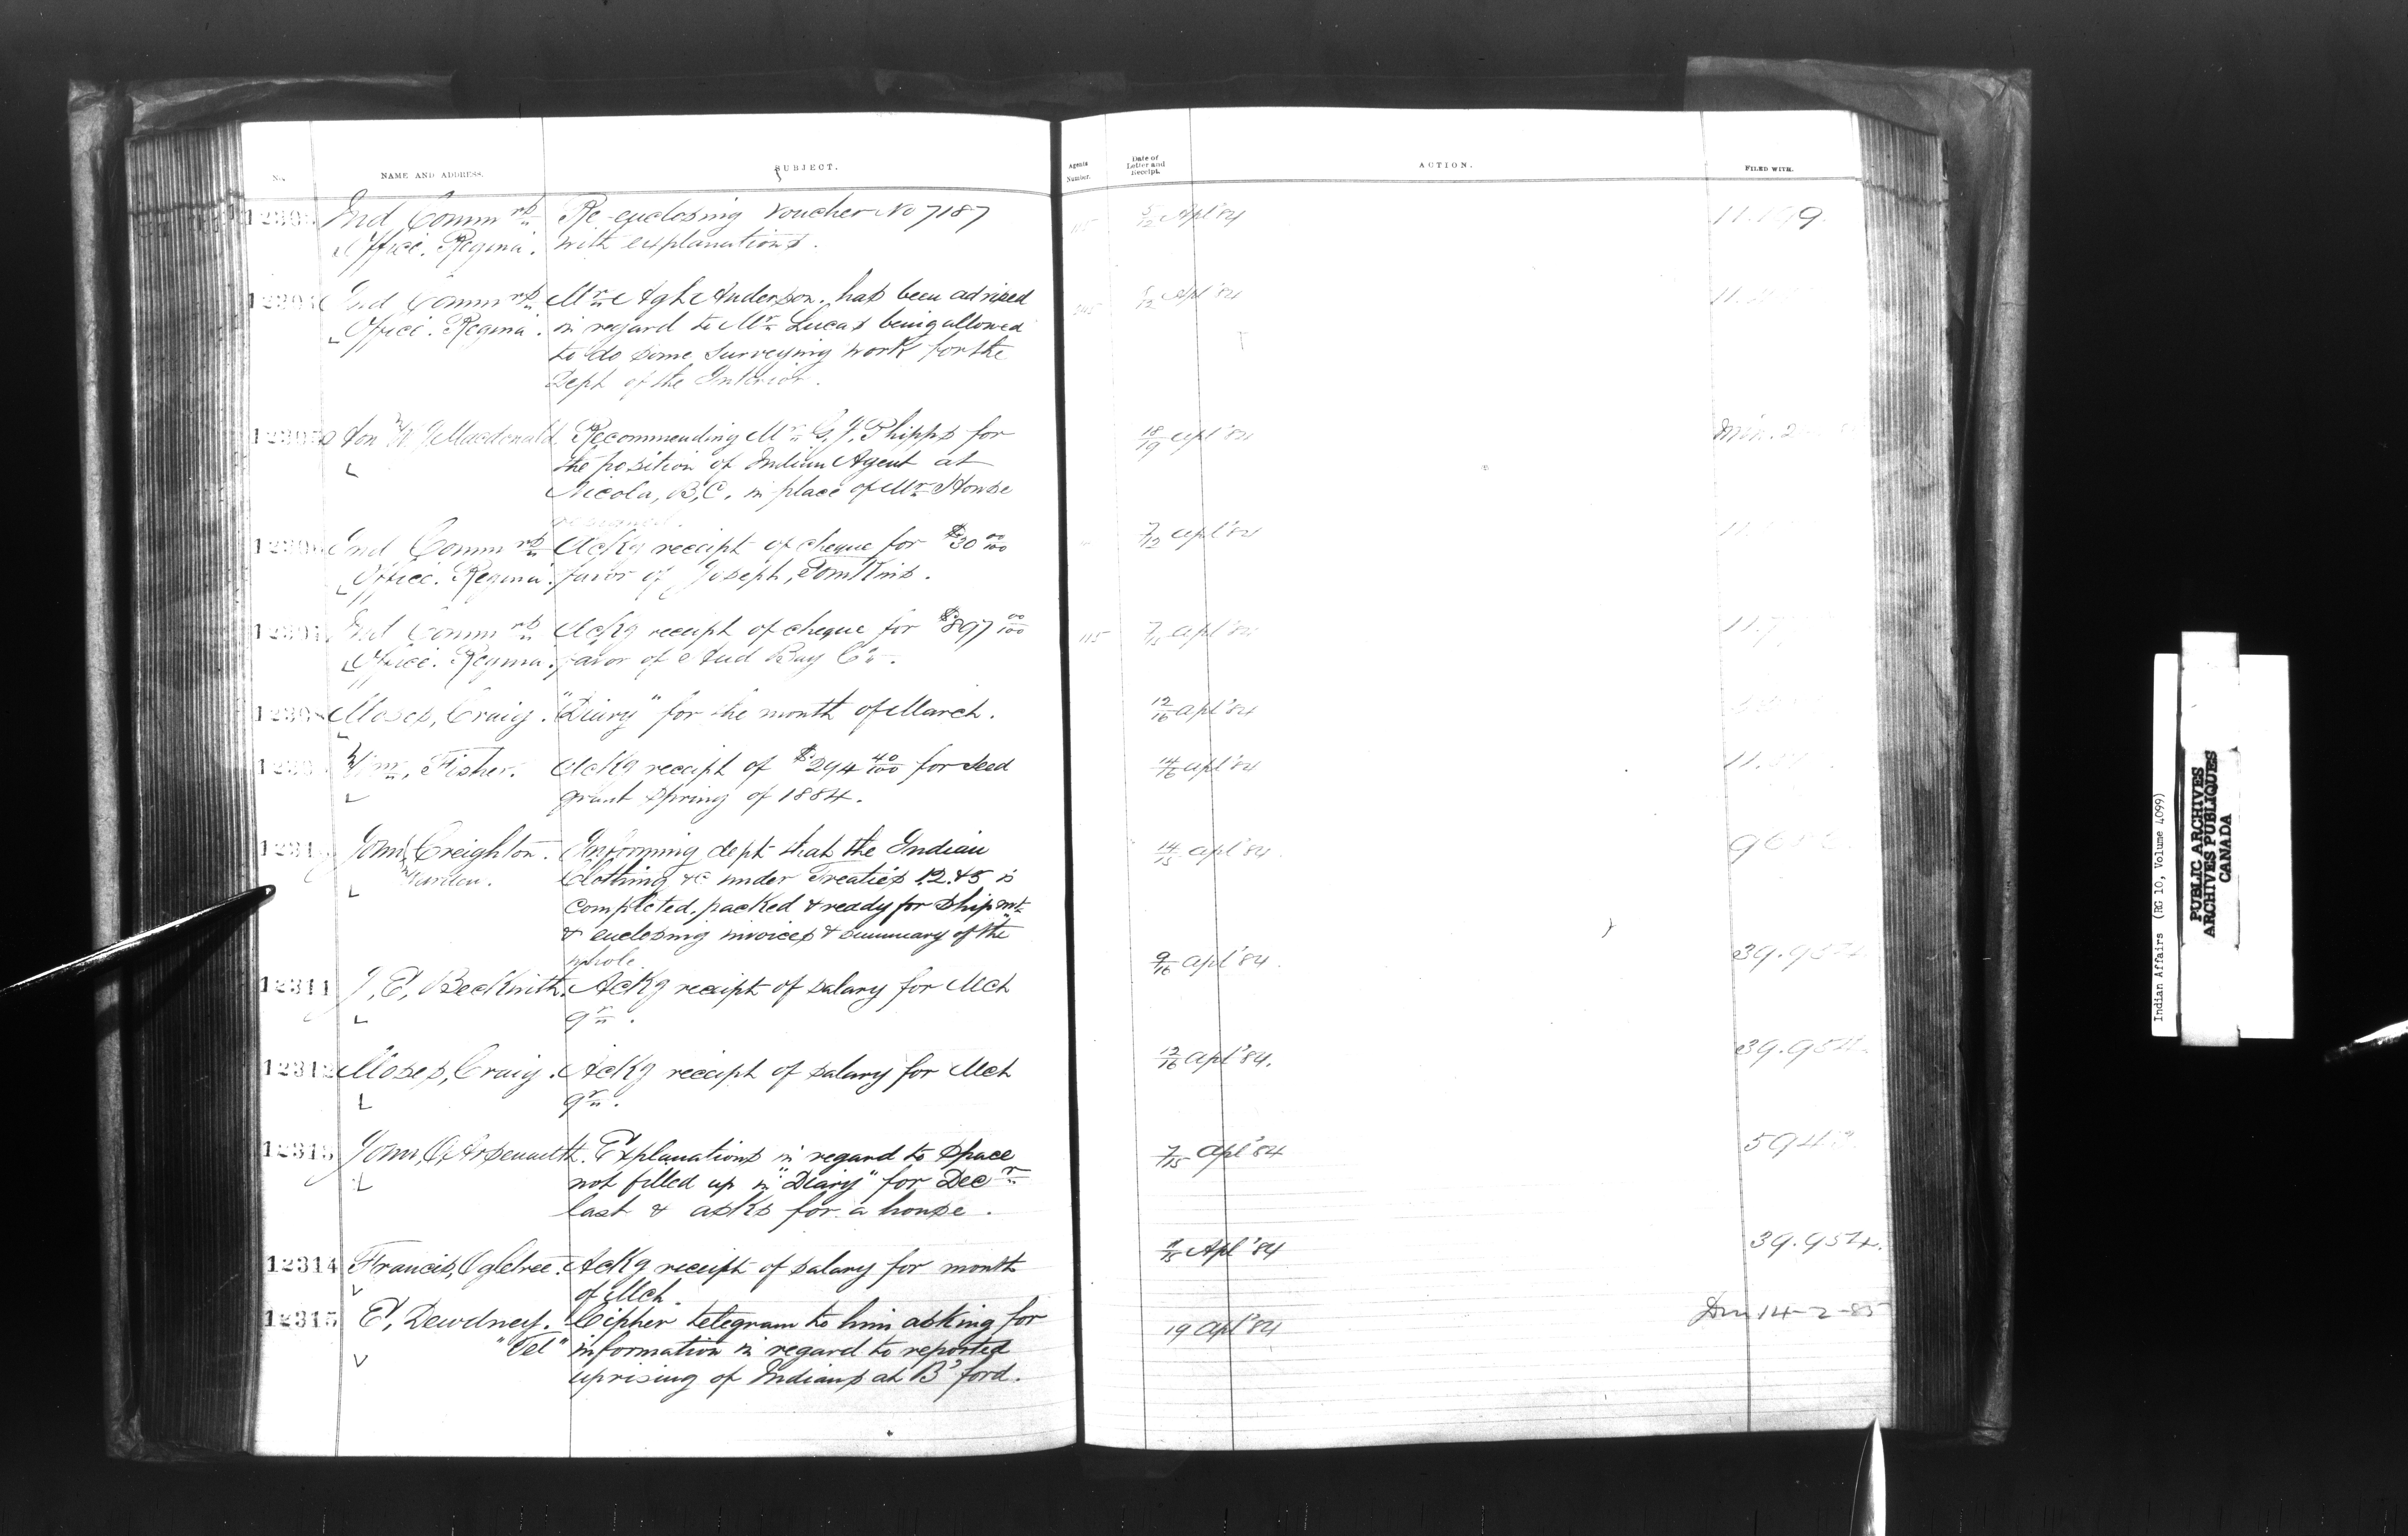 No. NAME AND ADDRESS. SUBJECT. Agents Number. Date of Letter and Receipt. ACTION. FILED WITH.
Ind Commrs Re-enclosing Voucher No 7187 5/12 Apl '84
Office. Regina. with explanations.
Ind Commrs Mr Agt Anderson. has been advised Apl '84
Office. Regina. in regard to Mr Lucas being allowed
to do some surveying work for the
Dept of the Interior.
Hon W J Macdonald. Recommending Mr G. J. Phipps for 18/19 Apl '84
the position of Indian Agent at
Nicola, B.C. in place of Mr Howse
resigned.
Ind Commrs Ackg receipt of cheque for $30 00/100 7/12 Apl '84
Office. Regina. favor of Joseph, Tomkins.
Ind Commrs Ackg receipt of cheque for $897 00/100 115 7/15 Apl '84
Office. Regina. favor of Hud Bay Co.
Moses, Craig. "Diary" for the month of March. 12/16 Apl '84
Wm, Fisher. Ackg receipt of $294 40/100 for seed 14/16 Apl '84
grant spring of 1884.
John Creighton. Informing dept that the Indian 14/15 Apl '84.
Warden. Clothing &c under Treaties 1.2.&5 is
completed, packed & ready for shipmt
& enclosing invoices & summary of the
whole
12311 J, E, Beckwith. Ackg receipt of salary for Mch 9/16 Apl '84. 39.954.
qr.
12312 Moses, Craig. Ackg receipt of salary for Mch 12/16 Apl '84. 39.954.
qr.
12313 John, O, Arsenaulth. Explanations in regard to space 7/15 Apl '84
not filled up in "Diary" for Decr
last & asks for a house.
12314 Francis, Ogletree. Ackg receipt of salary for month Apl '84 39.954.
of Mch.
12315 E, Dewdney. Cipher telegram to him asking for 19 Apl '84 14-2-85
"Tel" information in regard to reported
uprising of Indians at B'ford.
Indian Affairs (RG 10, Volume 4099)
PUBLIC ARCHIVES
ARCHIVES PUBLIQUES
CANADA